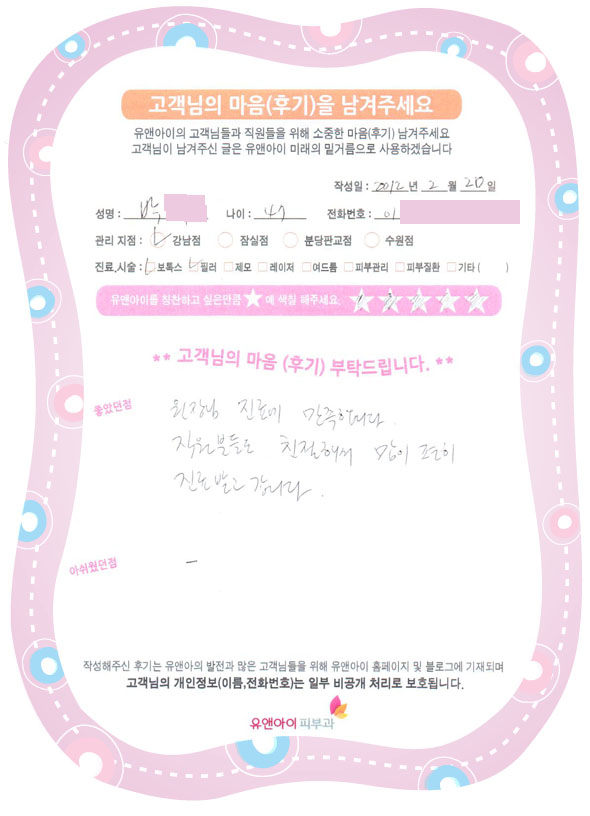 고객님의 마음(후기)을 남겨주세요
유앤아이의 고객님들과 직원들을 위해 소중한 마음(후기) 남겨주세요
고객님이 남겨주신 글은 유앤아이 미래의 밑거름으로 사용하겠습니다
작성일 : 2012 년 2 월 20 일
성명 : 박 나이 : 47 전화번호 : 01
관리 지점 : 강남점 잠실점 분당판교점 수원점
진료,시술 : 보톡스 필러 제모 레이저 여드름 피부관리 피부질환 기타 ( )
유앤아이를 칭찬하고 싶은만큼 ★ 에 색칠 해주세요.
** 고객님의 마음 (후기) 부탁드립니다. **
좋았던점
원장님 진료에 만족합니다.
직원분들도 친절해서 맘이 편히
진료받고 갑니다.
아쉬웠던점
–
작성해주신 후기는 유앤아의 발전과 많은 고객님들을 위해 유앤아이 홈페이지 및 블로그에 기재되며
고객님의 개인정보(이름,전화번호)는 일부 비공개 처리로 보호됩니다.
유앤아이 피부과